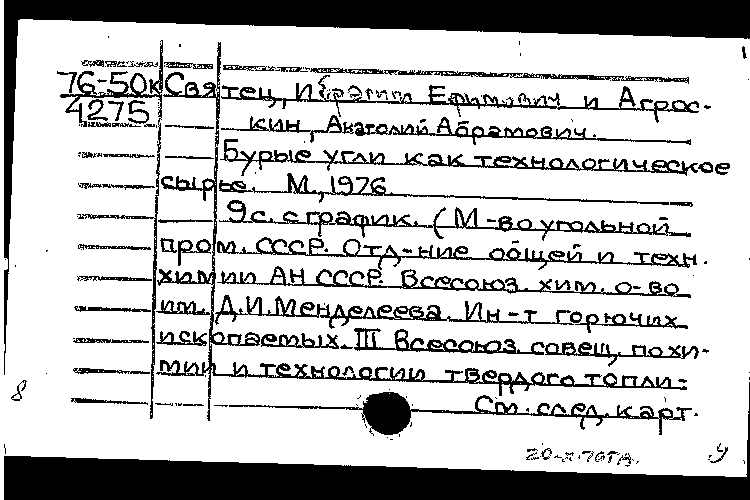 76-50к Святец, И Ефимович и Агрос-
4275 кин, Анатолий Абрамович.
Бурые угли как технологическое
сырье. М., 1976.
9 с. с график. (М-во угольной
пром. СССР. Отд-ние общей и техн.
химии АН СССР. Всесоюз. хим. о-во
им. Д.И. Менделеева. Ин-т горючих
ископаемых. III Всесоюз. совещ. по хи-
мии и технологии твердого топли-
См. след. карт.
8
У